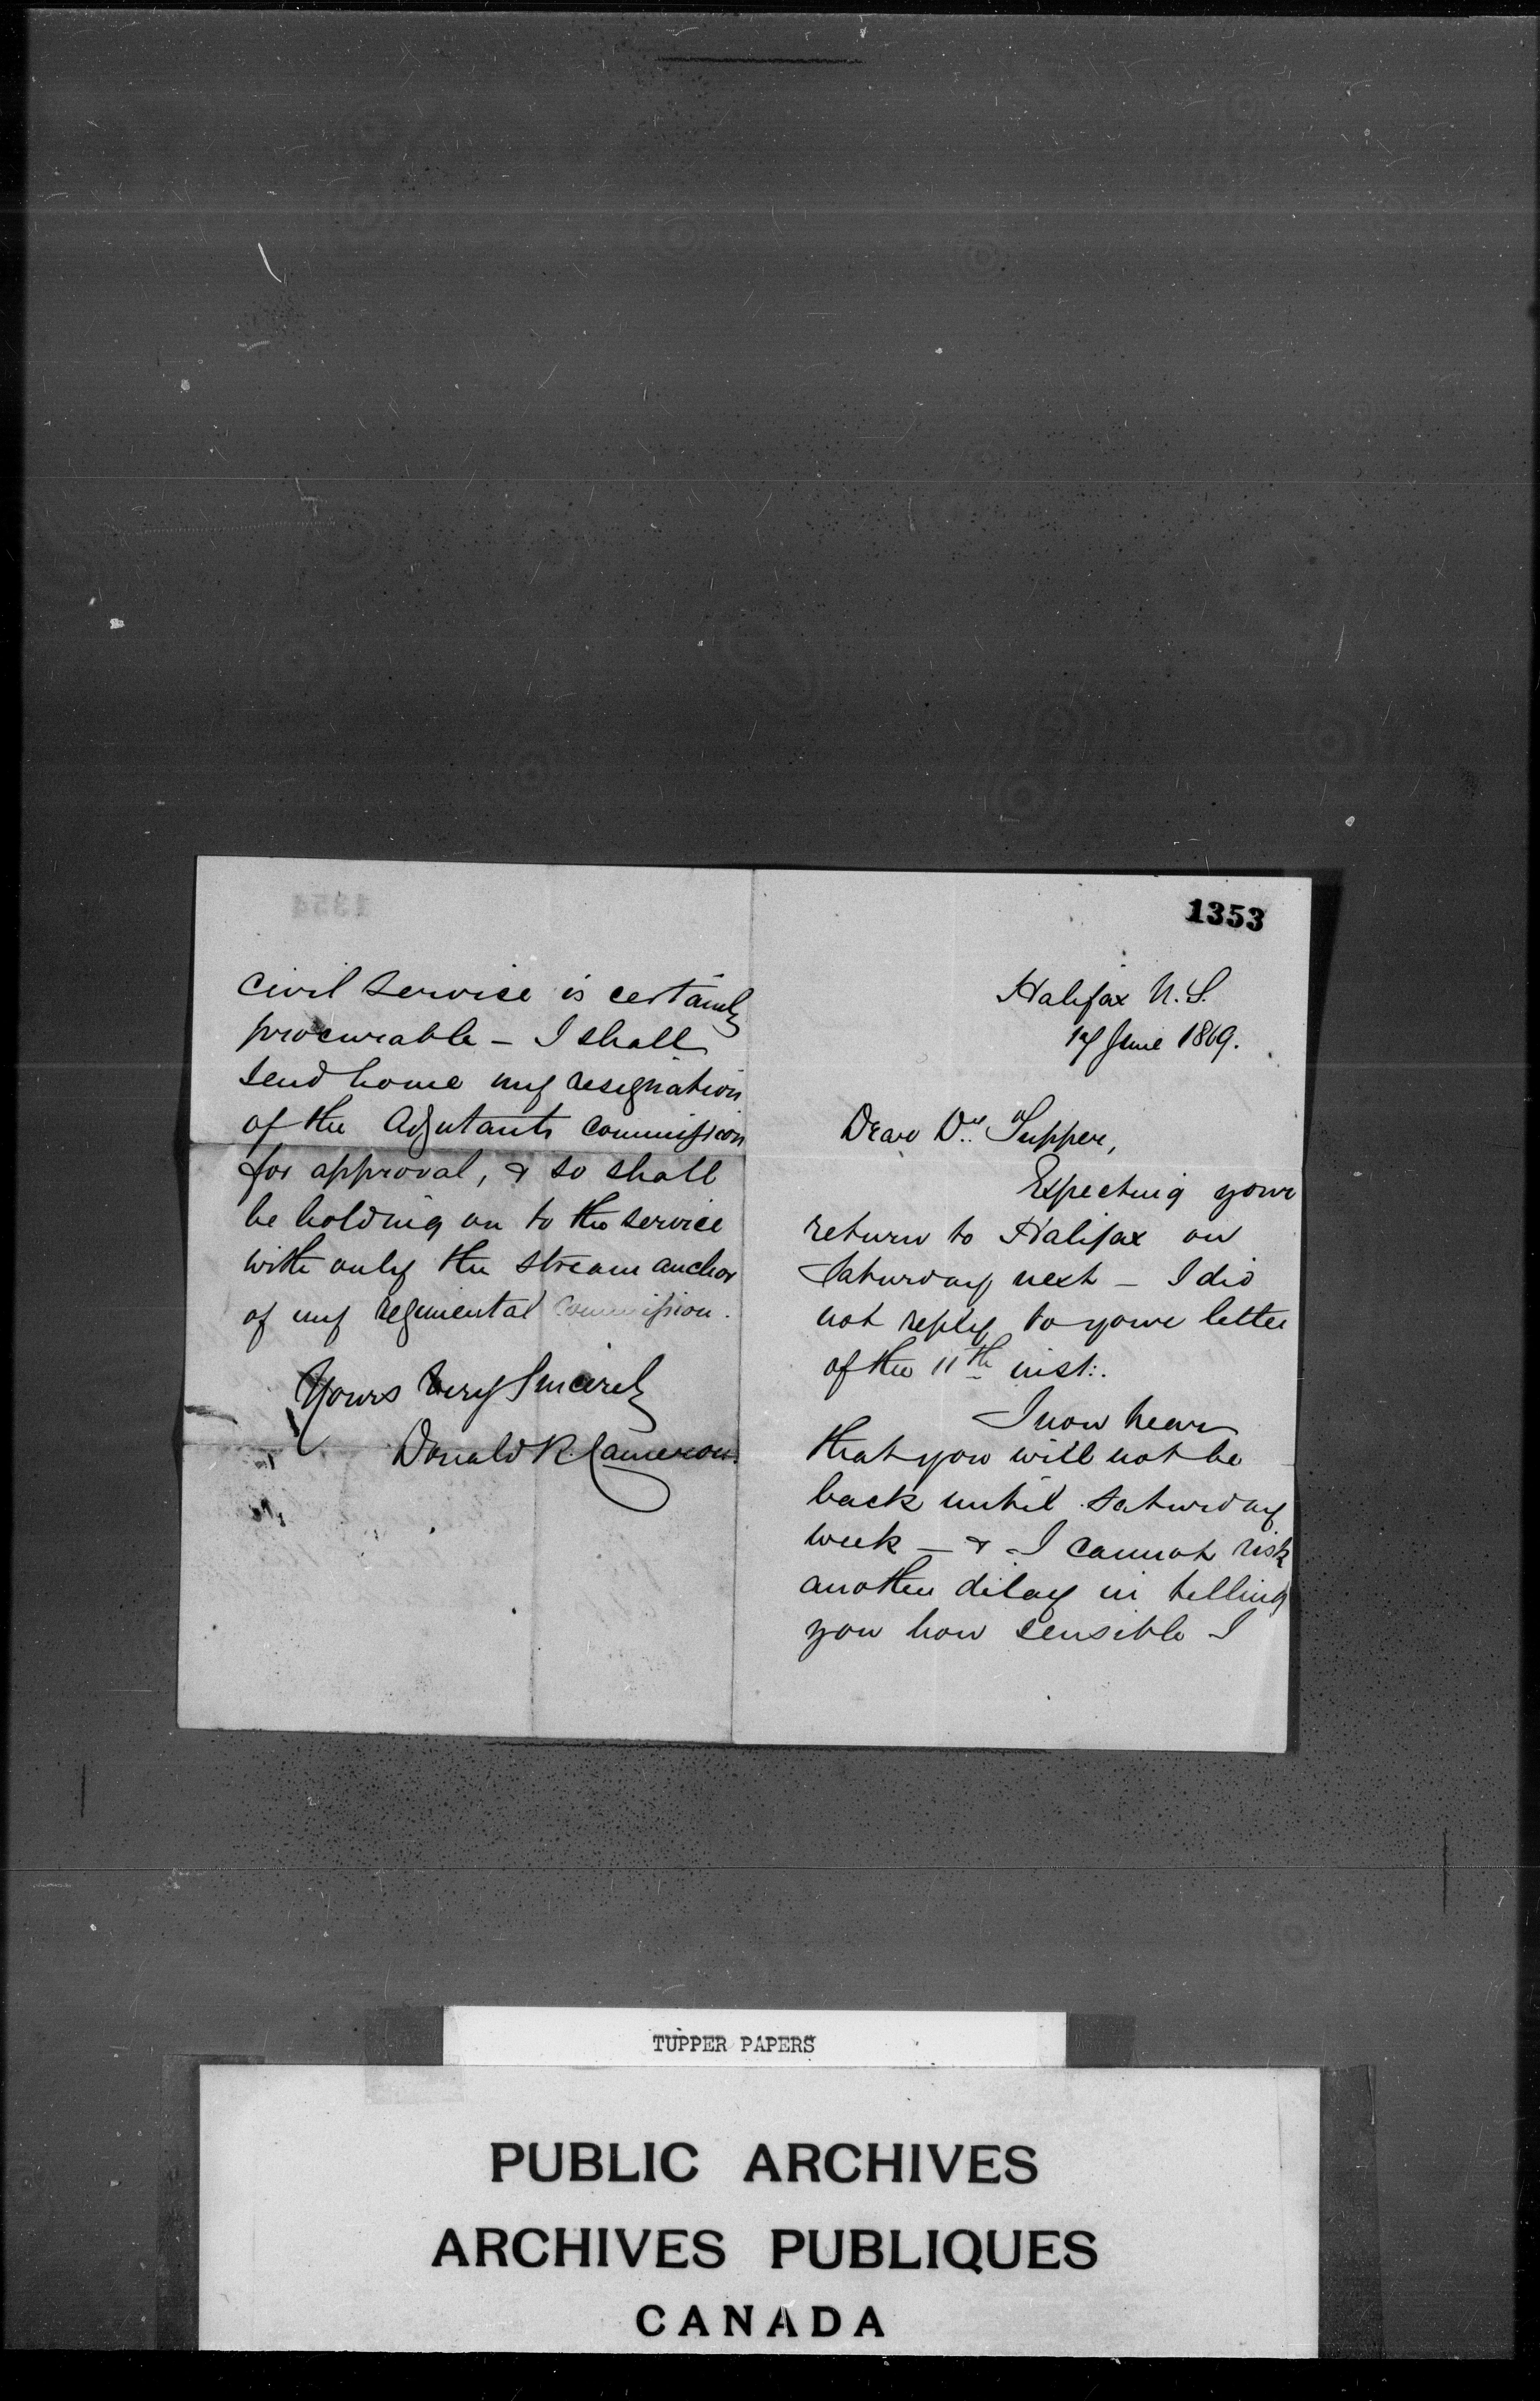 1353
Halifax N.S.
17 June 1869.
Dear Dr. Tupper,
Expecting your
return to Halifax on
Saturday next – I did
not reply to your letter
of the 11th inst:.
I now hear
that you will not be
back until Saturday
week – & I cannot risk
another delay in telling
you how sensible I
civil service is certainly
procurable – I shall
send home my resignation
of the Adjutants Commission
for approval, & so shall
be holding on to the service
with only the stream anchor
of my regimental commission.
Yours very Sincerely
Donald R. Cameron.
TUPPER PAPERS
PUBLIC ARCHIVES
ARCHIVES PUBLIQUES
CANADA